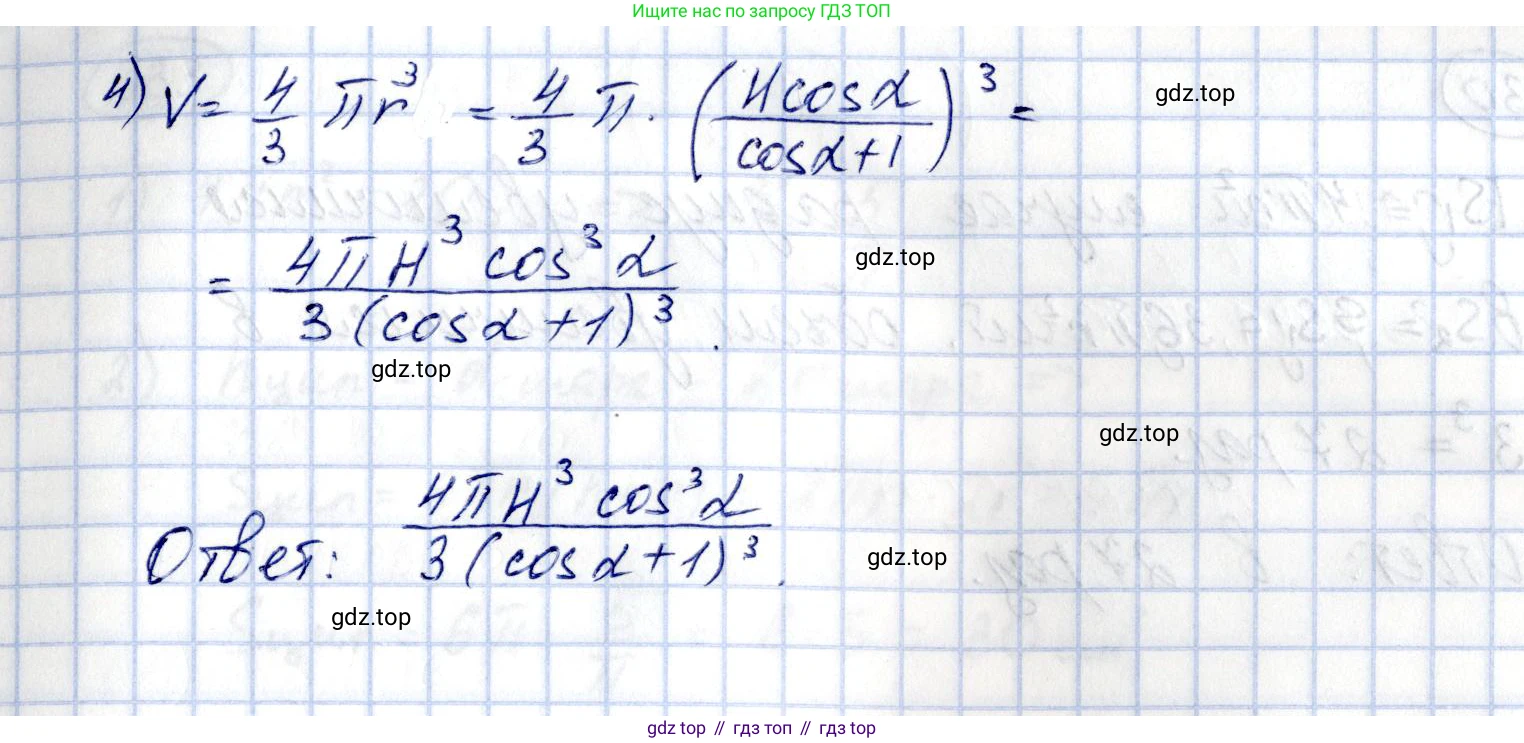 Ищите нас по запросу ГДЗ ТОП
4) V = 4/3 πr³ = 4/3 π · (H cosα / cosα+1)³ =
gdz.top
= 4πH³ cos³α / 3(cosα+1)³.
gdz.top
gdz.top
gdz.top
Ответ: 4πH³ cos³α / 3(cosα+1)³.
gdz.top
gdz.top
gdz.top // гдз топ // гдз top